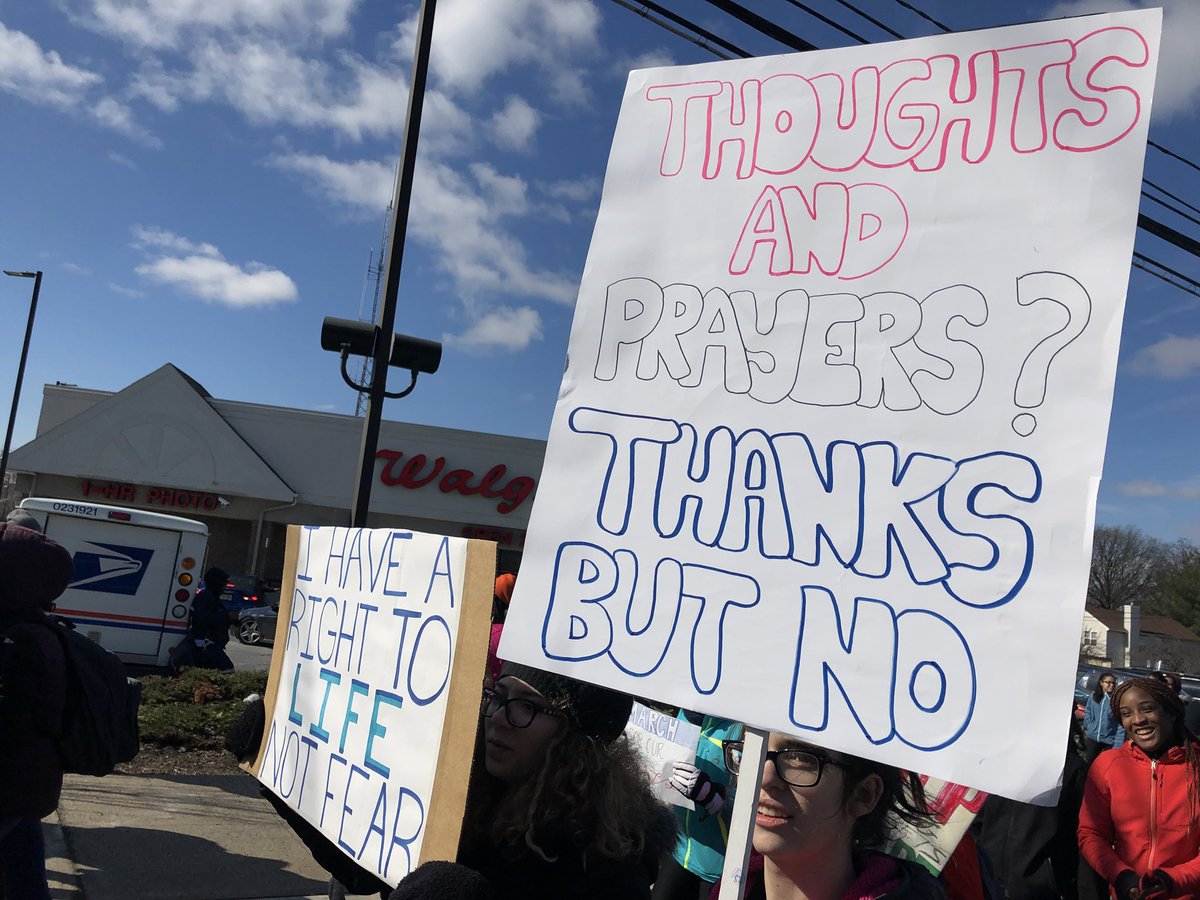 THOUGHTS
AND
PRAYERS?
THANKS
BUT NO
I HAVE A
RIGHT TO
LIFE
NOT FEAR
Walg
1-HR PHOTO
0231921
MARCH
OUR